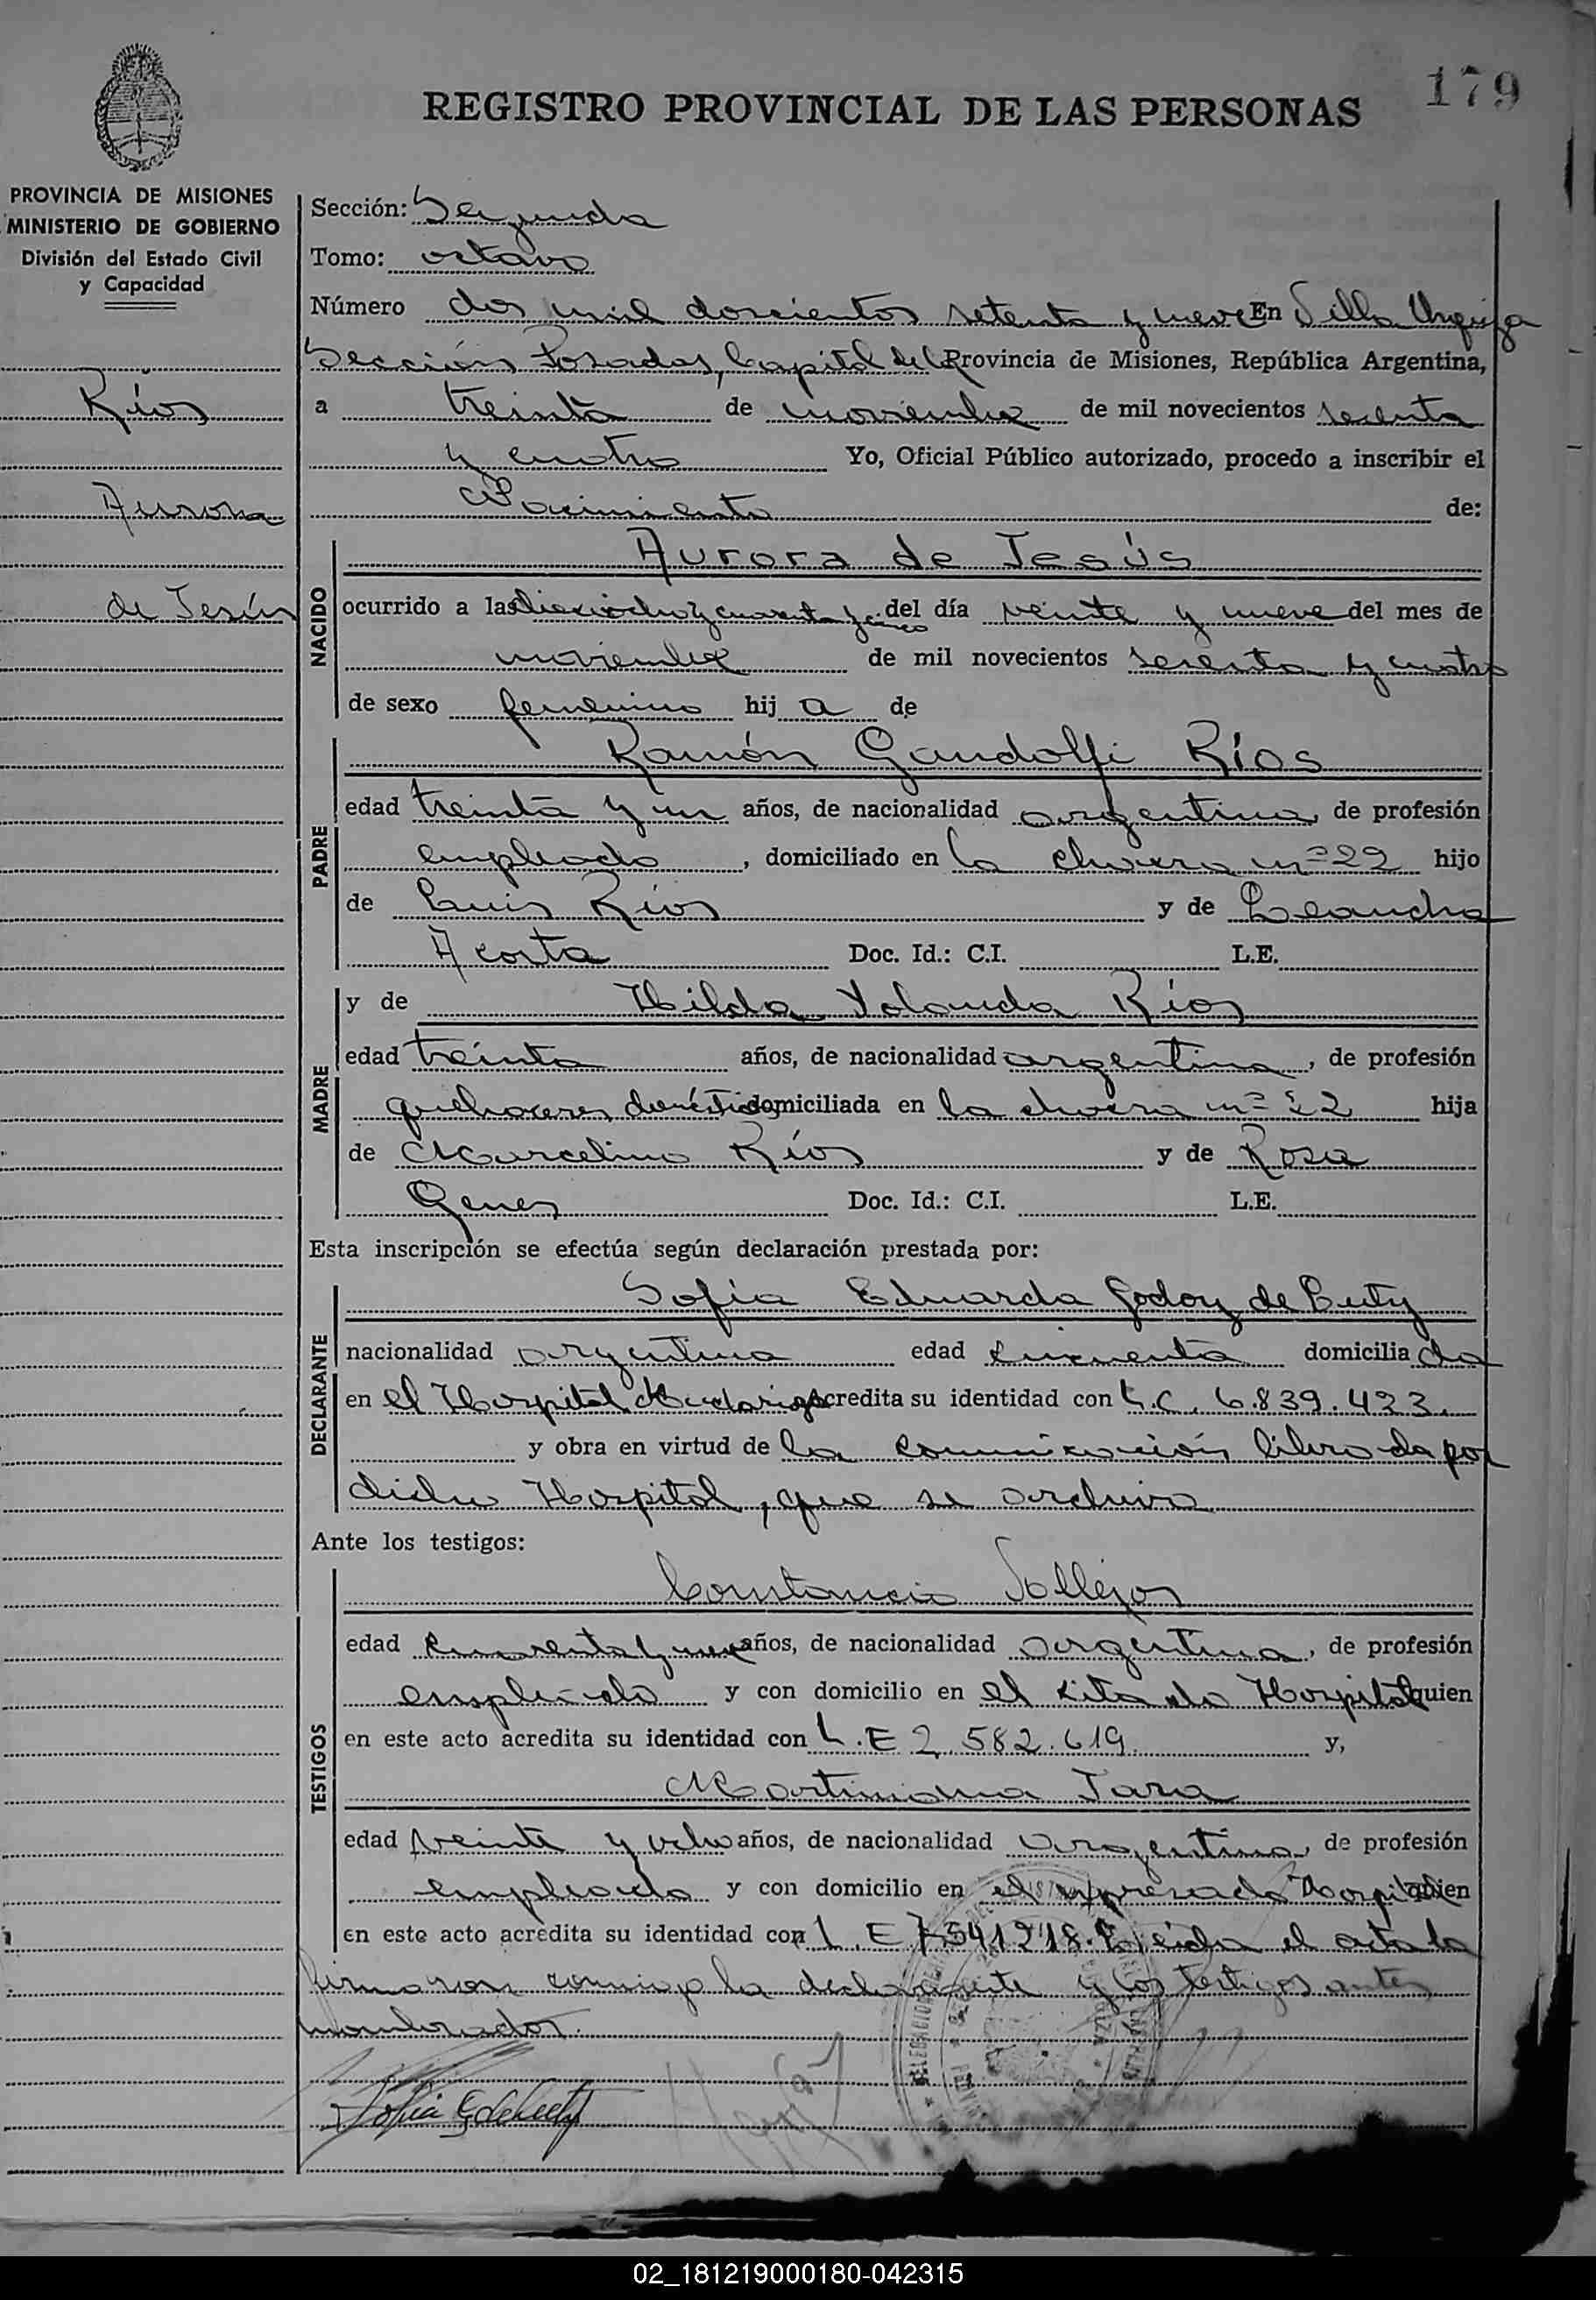 179
REGISTRO PROVINCIAL DE LAS PERSONAS
PROVINCIA DE MISIONES
MINISTERIO DE GOBIERNO
División del Estado Civil
y Capacidad
Ríos
Aurora
de Jesús
Sección: Segunda
Tomo: octavo
Número dos mil doscientos setenta y nueve En Villa Urquiza
Sección Posadas, Capital de la Provincia de Misiones, República Argentina,
a treinta de noviembre de mil novecientos sesenta
y cuatro Yo, Oficial Público autorizado, procedo a inscribir el
Nacimiento de:
NACIDO
Aurora de Jesús
ocurrido a las dieciocho y cuarenta y cinco del día veinte y nueve del mes de
noviembre de mil novecientos sesenta y cuatro
de sexo femenino hij a de
PADRE
Ramón Gandolfi Ríos
edad treinta y un años, de nacionalidad argentina, de profesión
empleado, domiciliado en la chacra nº 22 hijo
de Luis Ríos y de Leandra
Acosta Doc. Id.: C.I. L.E.
MADRE
y de Hilda Yolanda Ríos
edad treinta años, de nacionalidad argentina, de profesión
quehaceres domésticos domiciliada en la chacra nº 22 hija
de Marcelino Ríos y de Rosa
Genes Doc. Id.: C.I. L.E.
Esta inscripción se efectúa según declaración prestada por:
DECLARANTE
Sofía Eduarda Godoy de Cuty
nacionalidad argentina edad cincuenta domicilia da
en el Hospital Madariaga Acredita su identidad con L.C. 6.839.423.
y obra en virtud de la comunicación librada por
dicho Hospital, que se archiva
Ante los testigos:
TESTIGOS
Constancio Vallejos
edad cuarenta y nueve años, de nacionalidad argentina, de profesión
empleado y con domicilio en el citado Hospital quien
en este acto acredita su identidad con L.E 2.582.619. y,
Martiniana Jara
edad veinte y ocho años, de nacionalidad argentina, de profesión
empleada y con domicilio en el expresado Hospital quien
en este acto acredita su identidad con L.E 7.541218. Leída el acta la
firmaron conmigo la declarante y los testigos antes
nombrados.
02_181219000180-042315